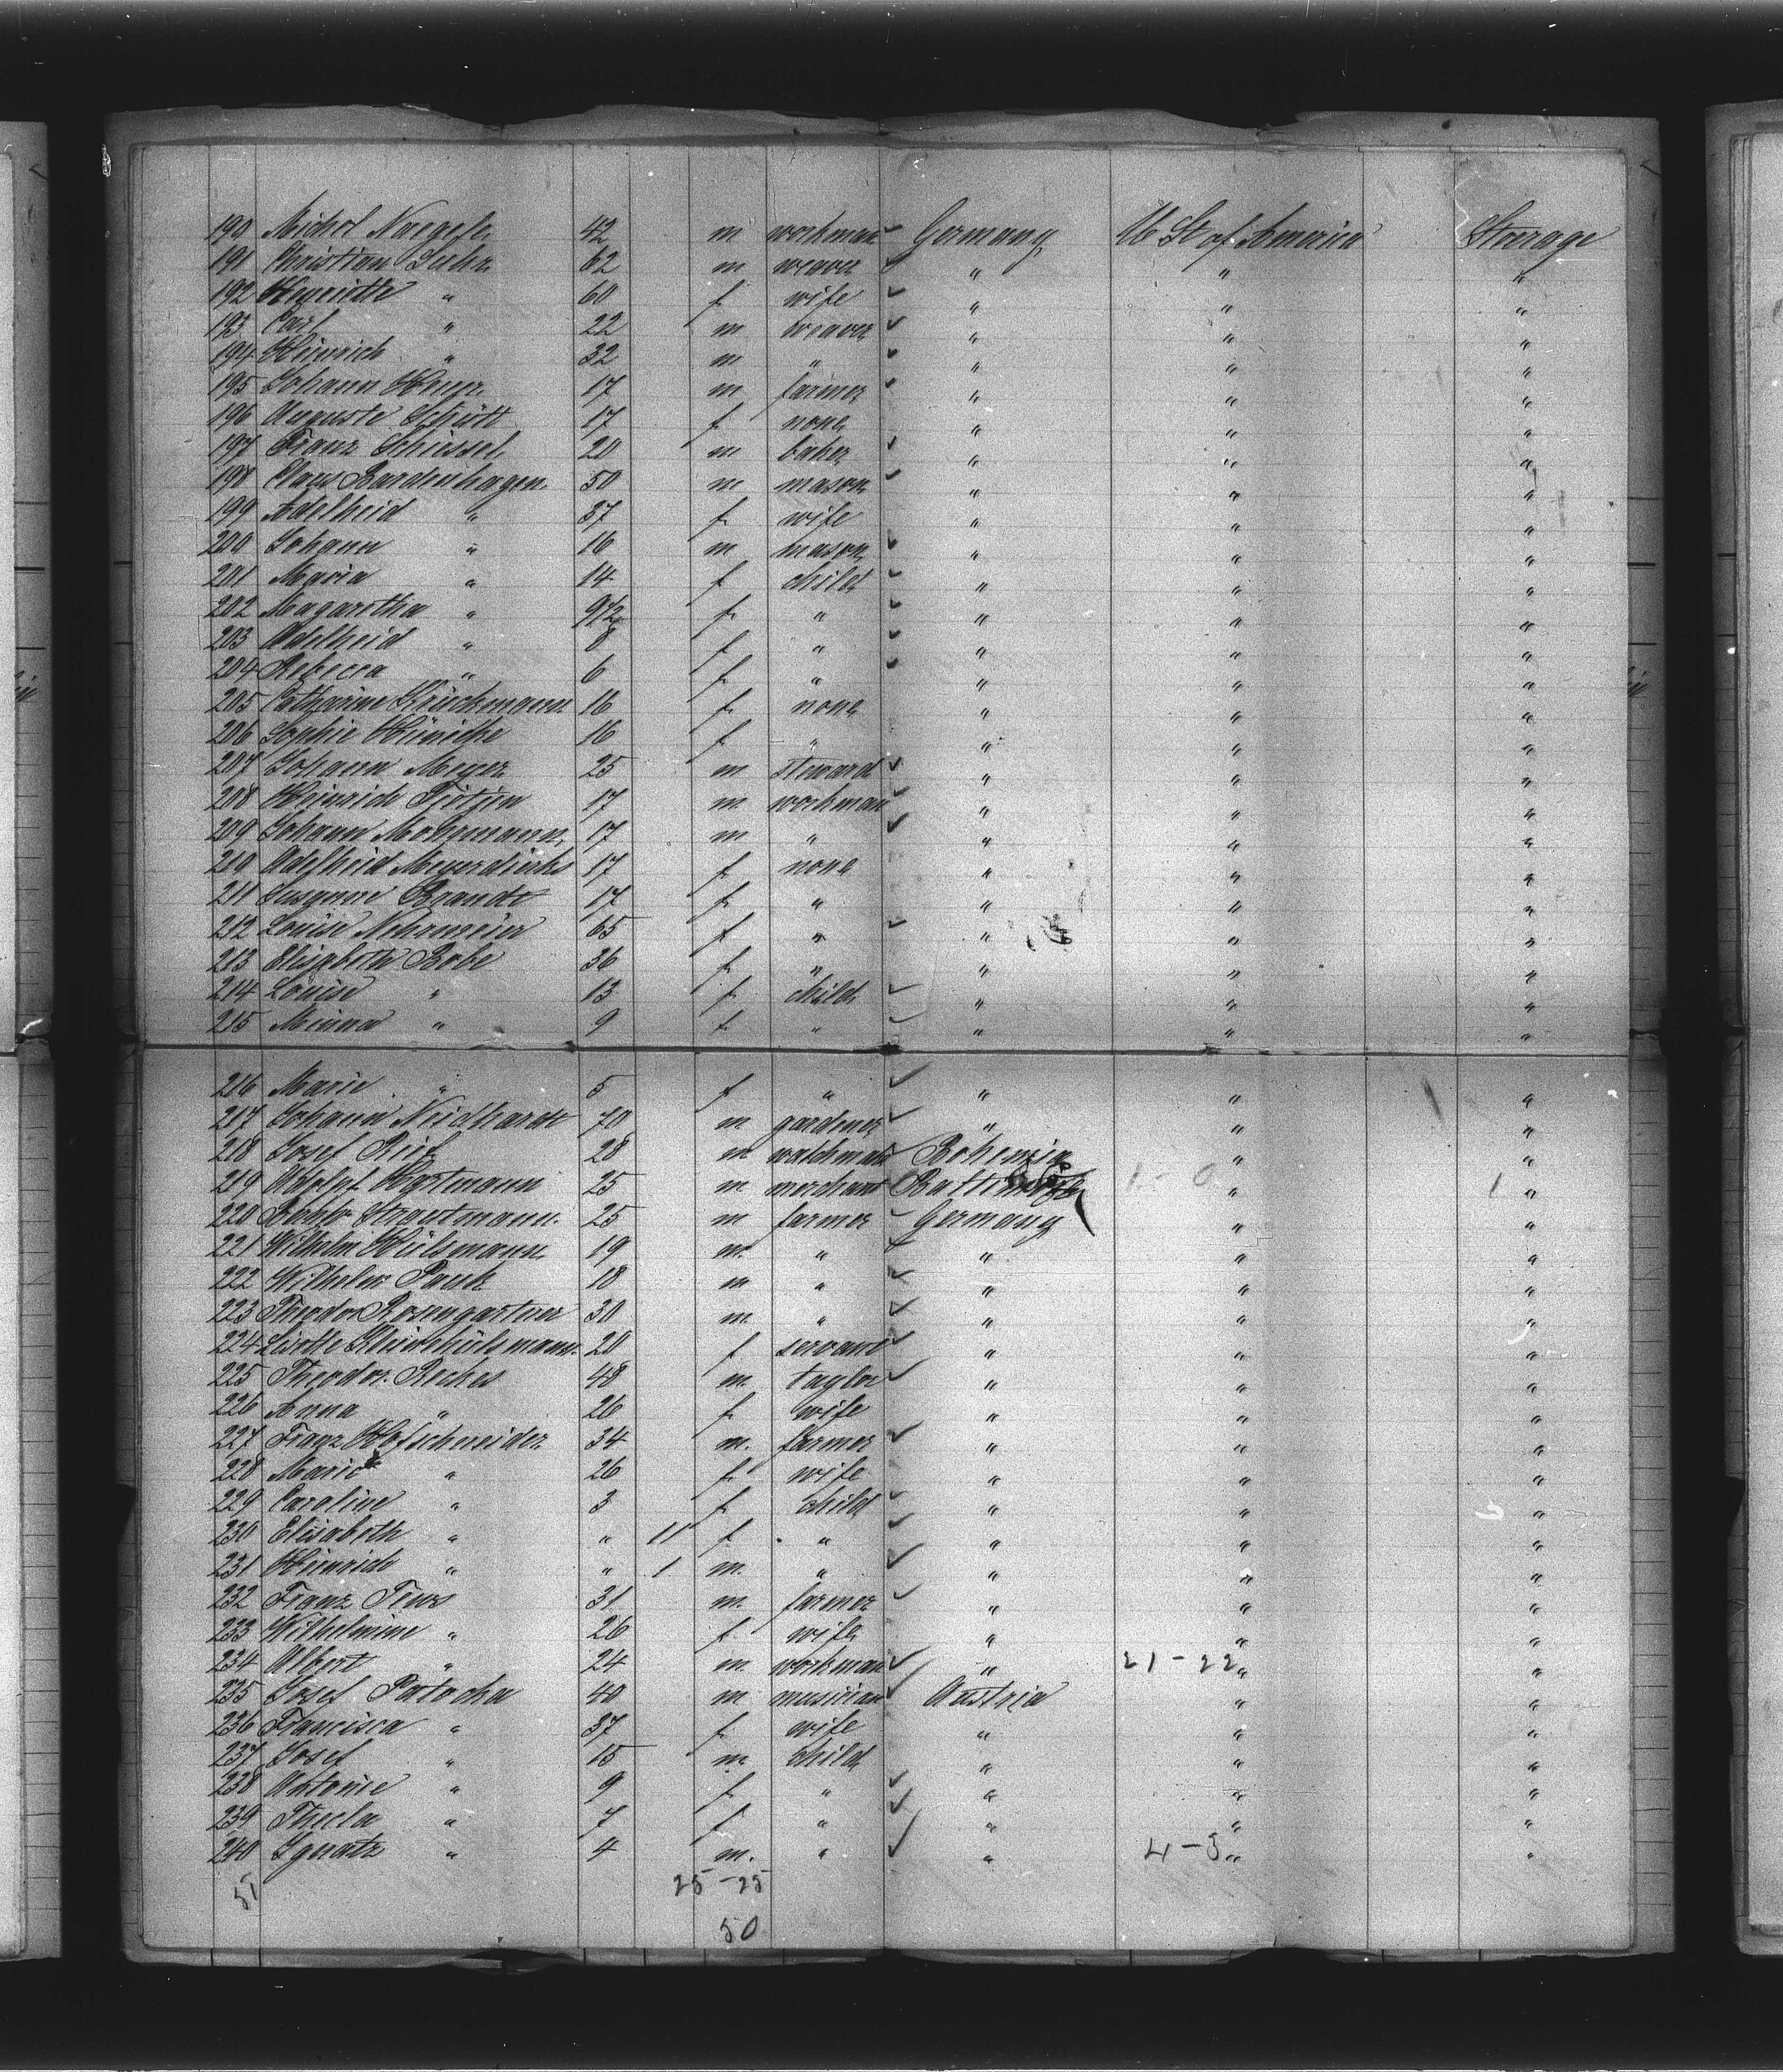 190 Michel Naegele 42 m workman Germany U St of America Steerage
191 Christian Suhr 62 m weaver " " "
192 Henriette " 60 f wife " " "
193 Carl " 22 m weaver " " "
194 Heinrich " 32 m " " " "
195 Johann Heyn 17 m farmer " " "
196 Auguste Schütt 17 f none " " "
197 Franz Schiessel 20 m baker " " "
198 Claus Bardenhagen 50 m mason " " "
199 Adelheid " 37 f wife " " "
200 Johann " 16 m mason " " "
201 Maria " 14 f child " " "
202 Magaretha " 9 1/2 f " " " "
203 Adelheid " 8 f " " " "
204 Rebecca " 6 f " " " "
205 Catharine Krückmann 16 f none " " "
206 Sophie 16 f " " " "
207 Johann Meyer 25 m steward " " "
208 Heinrich Tietjen 17 m workman " " "
209 Johann 17 m " " " "
210 Adelheid Meyerdierks 17 f none " " "
211 Susanne Brandt 17 f " " " "
212 Louise 65 f " " " "
213 Elisabeth Bobe 36 f " " " "
214 Louise " 13 f child " " "
215 Minna " 9 f " " " "
216 Marie " 5 f " " " "
217 Johann Neidhardt 70 m gardener " " "
218 Josef 28 m watchman Bohemia " "
219 Adolph Hartmann 25 m merchant Baltimore " "
220 Strautmann 25 m farmer Germany " "
221 Wilhelm Hülsmann 19 m " " " "
222 Wilhelm Pauk 18 m " " " "
223 Theodor Rosengartner 30 m " " " "
224 Lisette Kleinehülsmann 20 f servant " " "
225 Theodor Reches 48 m taylor " " "
226 Anna " 26 f wife " " "
227 Franz Hofschneider 34 m. farmer " " "
228 Marie " 26 f wife " " "
229 Caroline " 3 f child " " "
230 Elisabeth " " 11 f " " " "
231 Heinrich " " 1 m. " " " "
232 Franz Tews 31 m. farmer " " "
233 Wilhelmine " 26 f wife " " "
234 Albert " 24 m. workman " 21-22 " "
235 Josef Patocka 40 m musician Austria " "
236 Francisca " 37 f wife " " "
237 Josef " 15 m. child " " "
238 Antonie " 9 f " " " "
239 Thecla " 7 f " " " "
240 Ignatz " 4 m. " " 4-3 " "
51 25-25
50